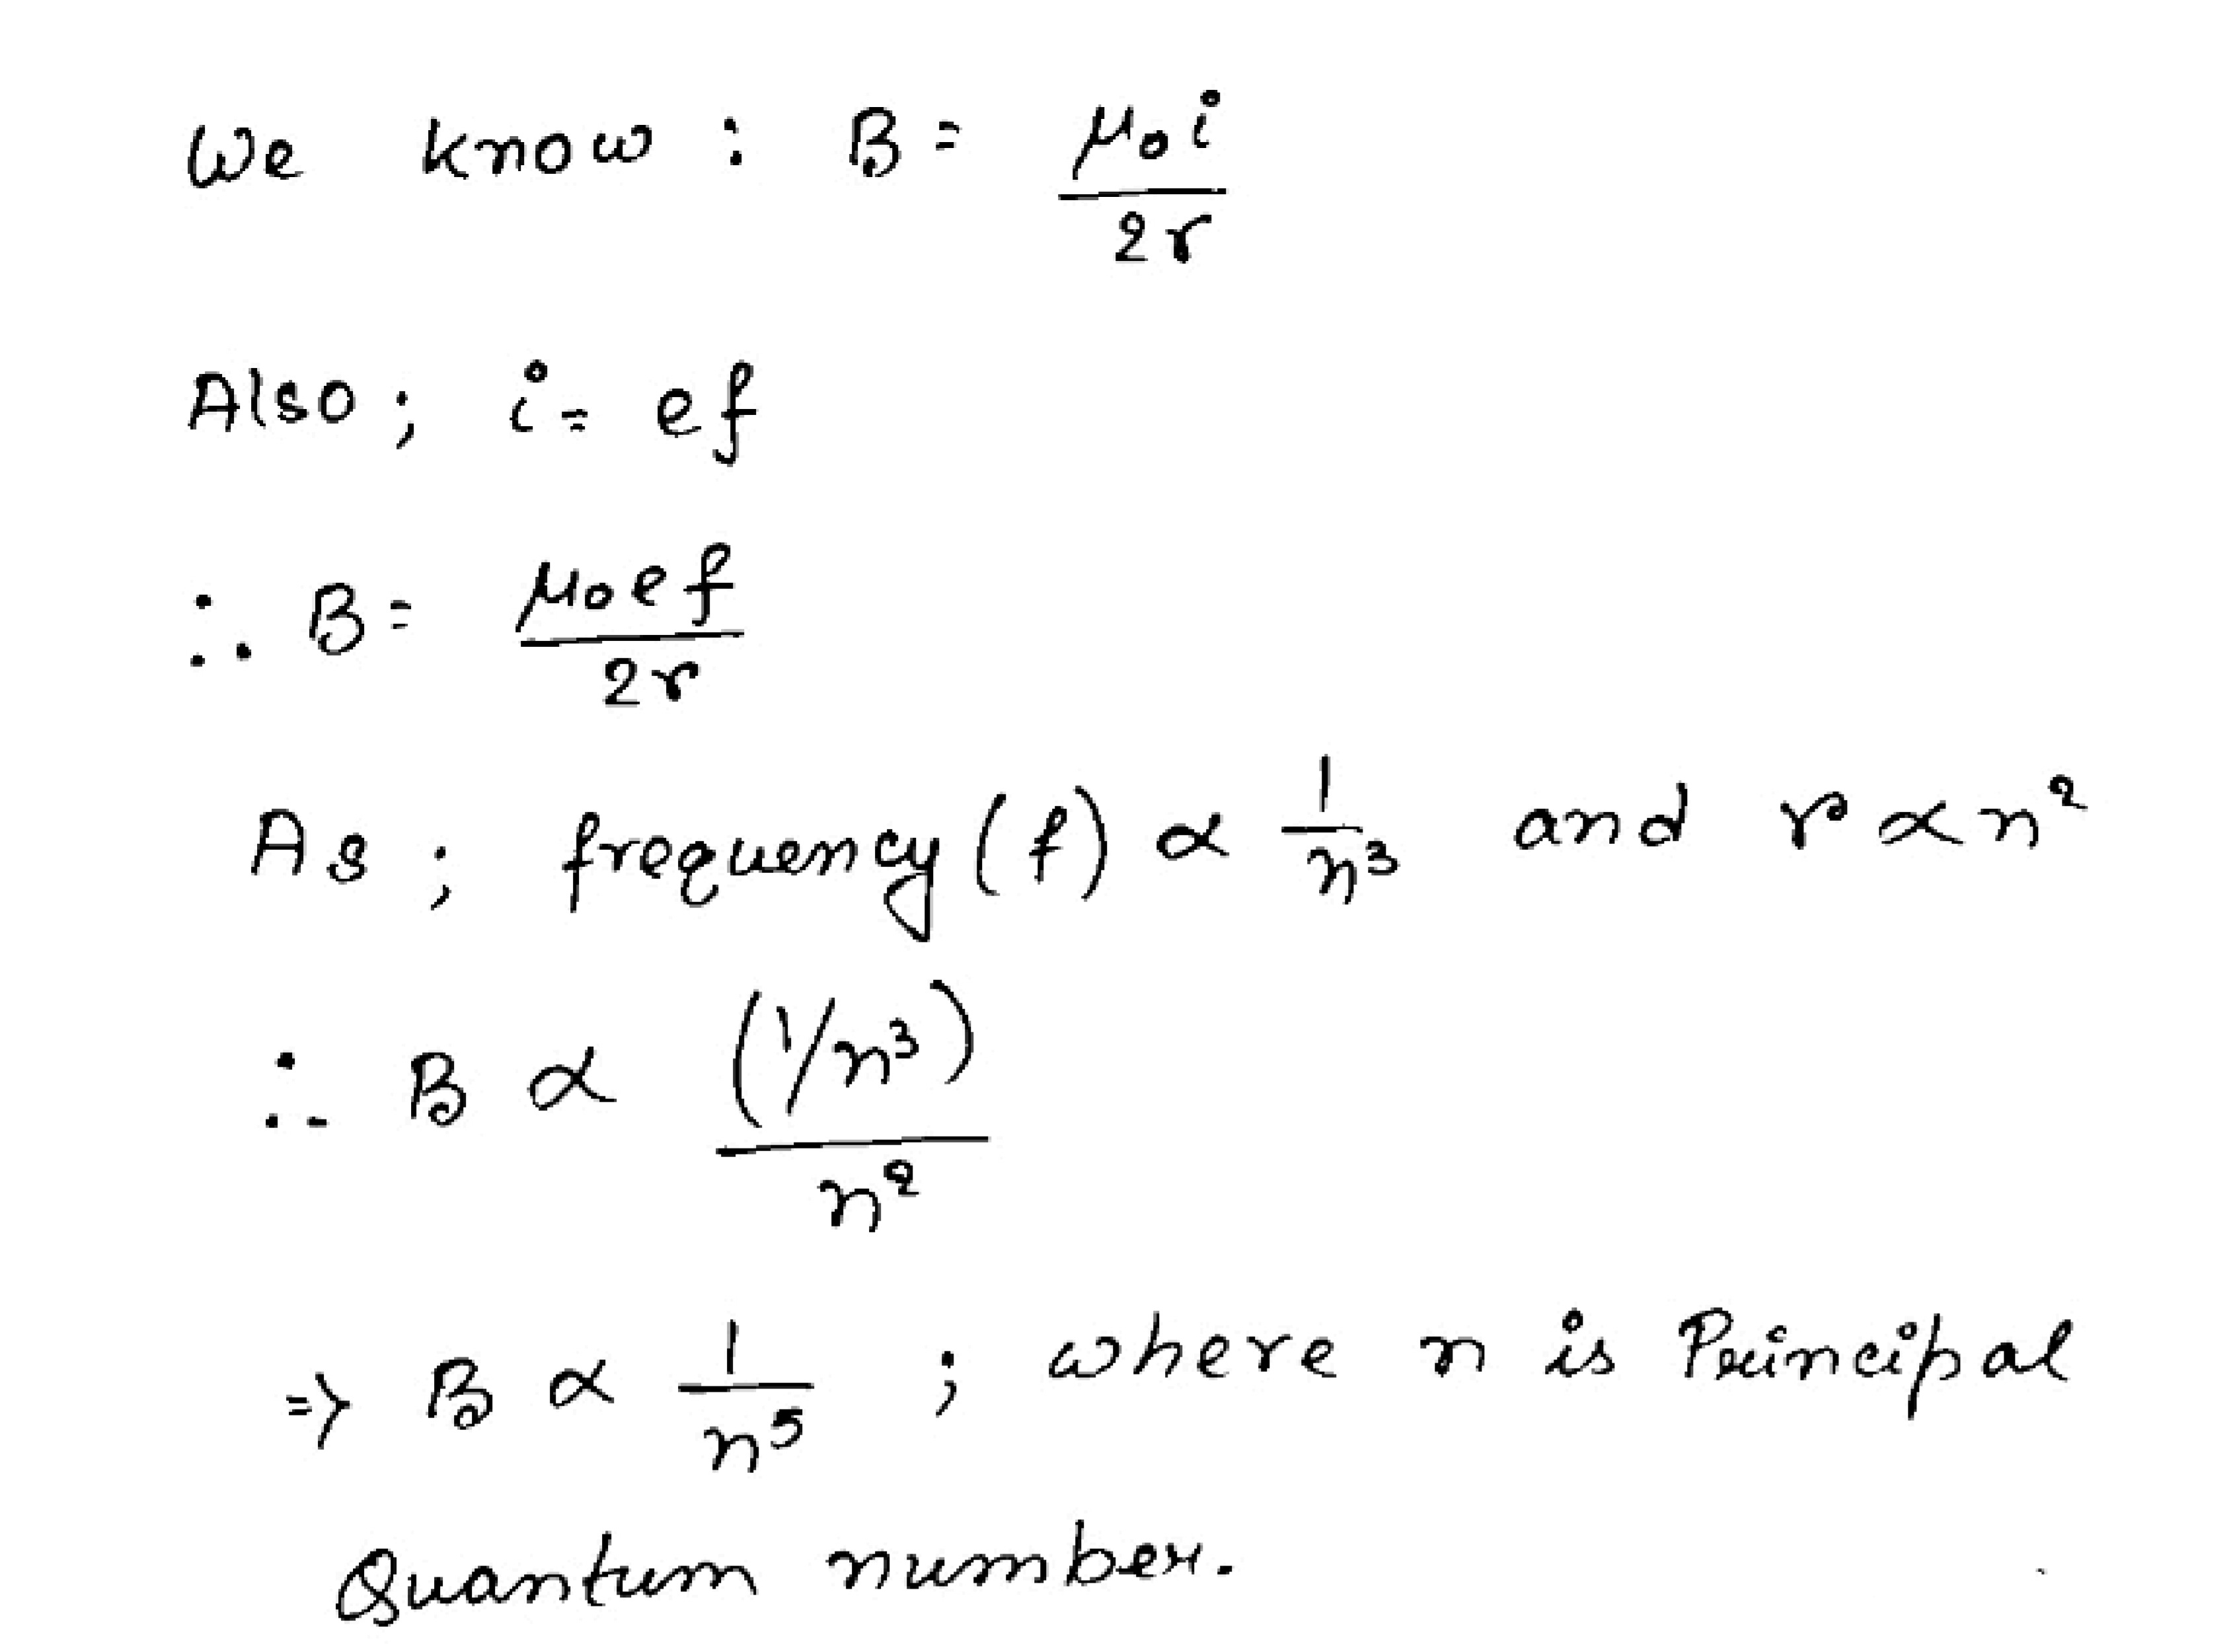 We know : B = μ₀i / 2r
Also ; i = ef
∴ B = μ₀ef / 2r
As ; frequency (f) ∝ 1/n³ and r ∝ n²
∴ B ∝ (1/n³) / n²
⇒ B ∝ 1/n⁵ ; where n is Principal
Quantum number.